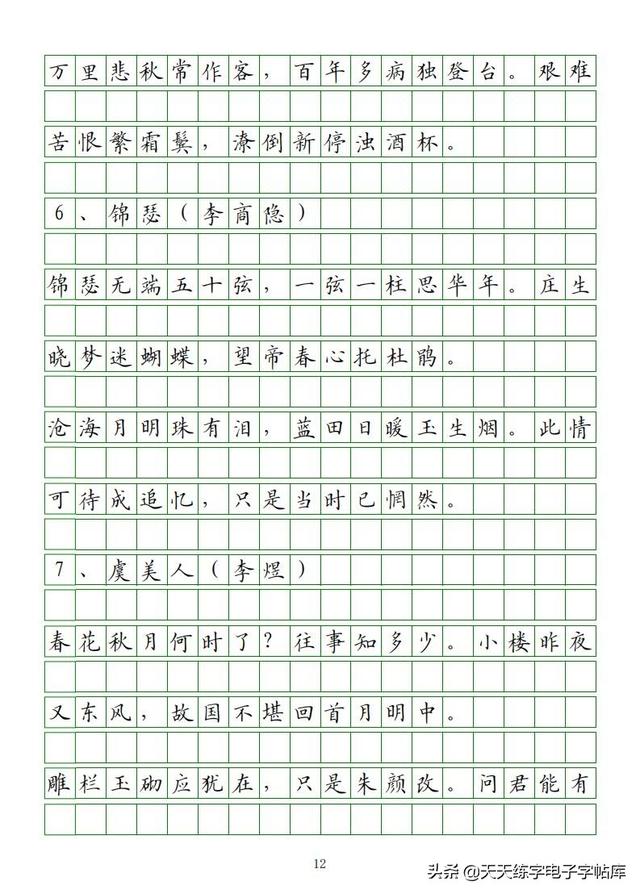 万里悲秋常作客，百年多病独登台。艰难
苦恨繁霜鬓，潦倒新停浊酒杯。
6、锦瑟（李商隐）
锦瑟无端五十弦，一弦一柱思华年。庄生
晓梦迷蝴蝶，望帝春心托杜鹃。
沧海月明珠有泪，蓝田日暖玉生烟。此情
可待成追忆，只是当时已惘然。
7、虞美人（李煜）
春花秋月何时了？往事知多少。小楼昨夜
又东风，故国不堪回首月明中。
雕栏玉砌应犹在，只是朱颜改。问君能有
12
头条 @天天练字电子字帖库